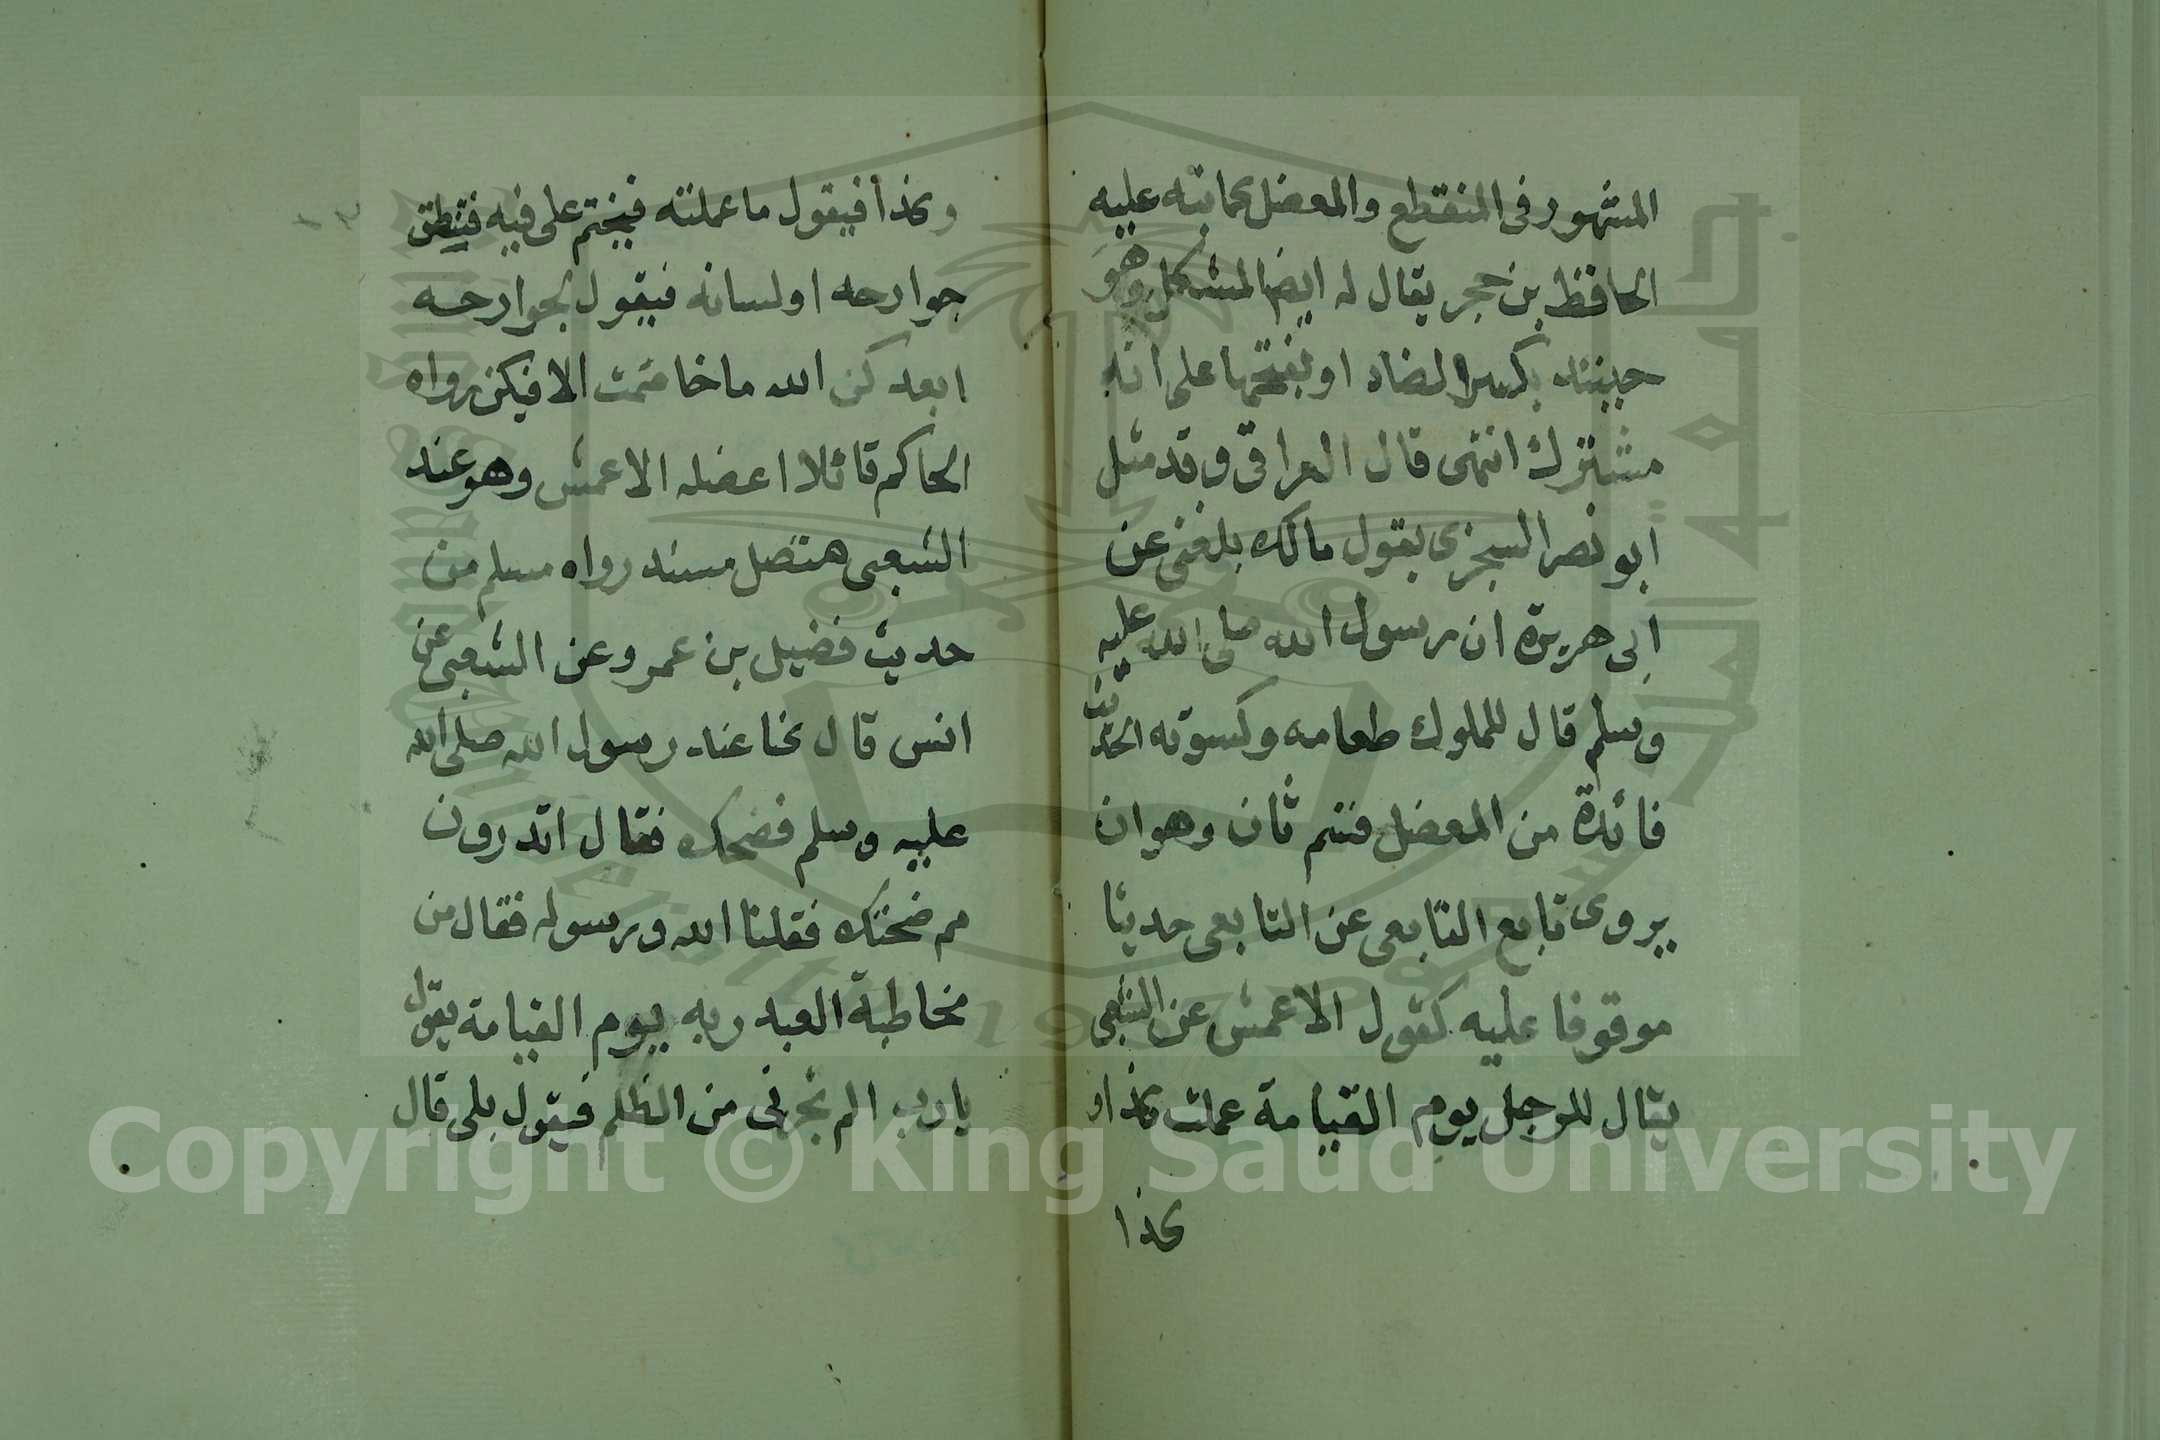 المشهور في المنقطع والمعضل كما نبه عليه
الحافظ بن حجر يقال له ايضا المشكل وهو
حينئذ بكسر الضاد او بفتحها على انه
مشترك انتهى قال العراقي وقد مثل
ابو نصر السجزى بقول مالك بلغنى عن
ابى هريرة ان رسول الله صلى الله عليه
وسلم قال للمملوك طعامه وكسوته الحديث
فائدة من المعضل قسم ثان وهو ان
يروى تابع التابعى عن التابعى حديثا
موقوفا عليه كقول الاعمش عن الشعبى
يقال للرجل يوم القيامة عملت كذا و
كذا
وكذا فيقول ما عملته فيختم على فيه فتنطق
جوارحه او لسانه فيقول لجوارحه
ابعدكن الله ما خاصمت الا فيكن رواه
الحاكم قائلا اعضله الاعمش وهو عند
الشعبى متصل مسند رواه مسلم من
حديث فضيل بن عمرو عن الشعبى عن
انس قال كنا عند رسول الله صلى الله
عليه وسلم فضحك فقال اتدرون
مم ضحكت فقلنا الله ورسوله فقال من
مخاطبة العبد ربه يوم القيامة يقول
يا رب الم تجرنى من الظلم فيقول بلى قال
Copyright © King Saud University